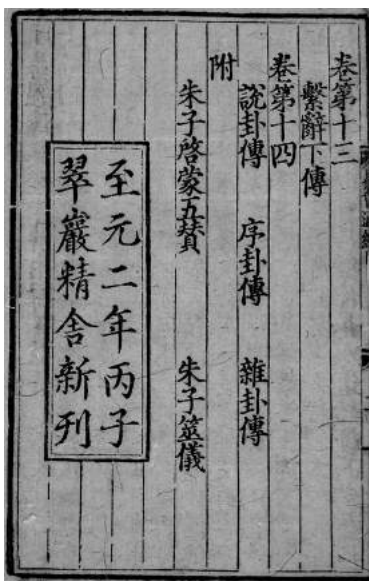 卷第十三
繫辭下傳
卷第十四
說卦傳 序卦傳 雜卦傳
附
朱子啓蒙五贊 朱子筮儀
至元二年丙子
翠巖精舍新刋